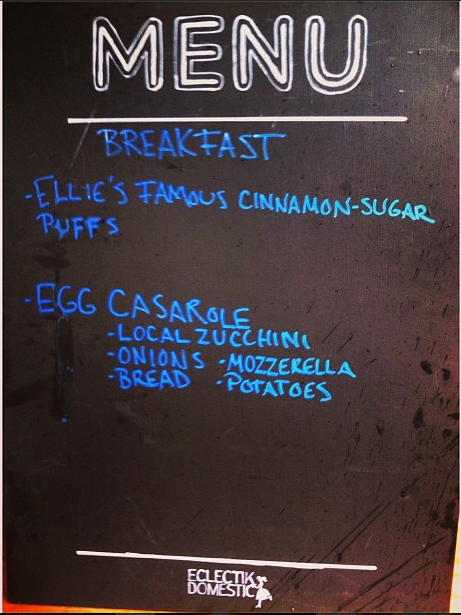 MENU
BREAKFAST
-ELLIE'S FAMOUS CINNAMON-SUGAR
PUFFS
-EGG CASAROLE
-LOCAL ZUCCHINI
-ONIONS -MOZZERELLA
-BREAD -POTATOES
ECLECTIK
DOMESTIC